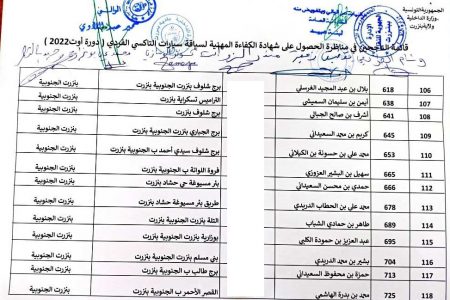 الجمهورية التونسية
وزارة الداخلية
ولاية بنزرت
الوالي
قائمة الناجحين في مناظرة الحصول على شهادة الكفاءة المهنية لسياقة سيارات التاكسي الفردي ( دورة أوت2022 )
106 618 بلال بن عبد المجيد الغرسلي برج شلوف بنزرت الجنوبية بنزرت بنزرت الجنوبية
107 638 أيمن بن سليمان السميشي الترايس تسكراية بنزرت بنزرت الجنوبية
108 641 أشرف بن صالح الجبالي برج شلوف بنزرت بنزرت الجنوبية
109 645 كريم بن محمد السعيداني برج الجباري بنزرت بنزرت الجنوبية
110 653 محمد علي بن حسونة بن الكيلاني برج شلوف سيدي أحمد ب الجنوبية بنزرت بنزرت الجنوبية
111 665 سهيل بن البشير العزوزي فروة اللواتة ب الجنوبية بنزرت بنزرت الجنوبية
112 666 حمدي بن محسن السعيداني بئر مسيوغة حي حشاد بنزرت بنزرت الجنوبية
113 678 محمد علي بن الحطاب الدريدي طريق بئر مسيوغة حشاد بنزرت بنزرت الجنوبية
114 689 طاهر بن حمادي الشباب التلة بنزرت الجنوبية بنزرت بنزرت الجنوبية
115 695 عبد العزيز بن حمودة الكلبي بوزارية بنزرت الجنوبية بنزرت بنزرت الجنوبية
116 704 بشير بن محمد الدريدي بني مسلم بنزرت الجنوبية بنزرت بنزرت الجنوبية
117 713 حمزة بن محفوظ السعيداني برج طالب ب الجنوبية بنزرت بنزرت الجنوبية
118 725 محمد بن بدرة الهاشمي القصر الأحمر ب الجنوبية بنزرت بنزرت الجنوبية